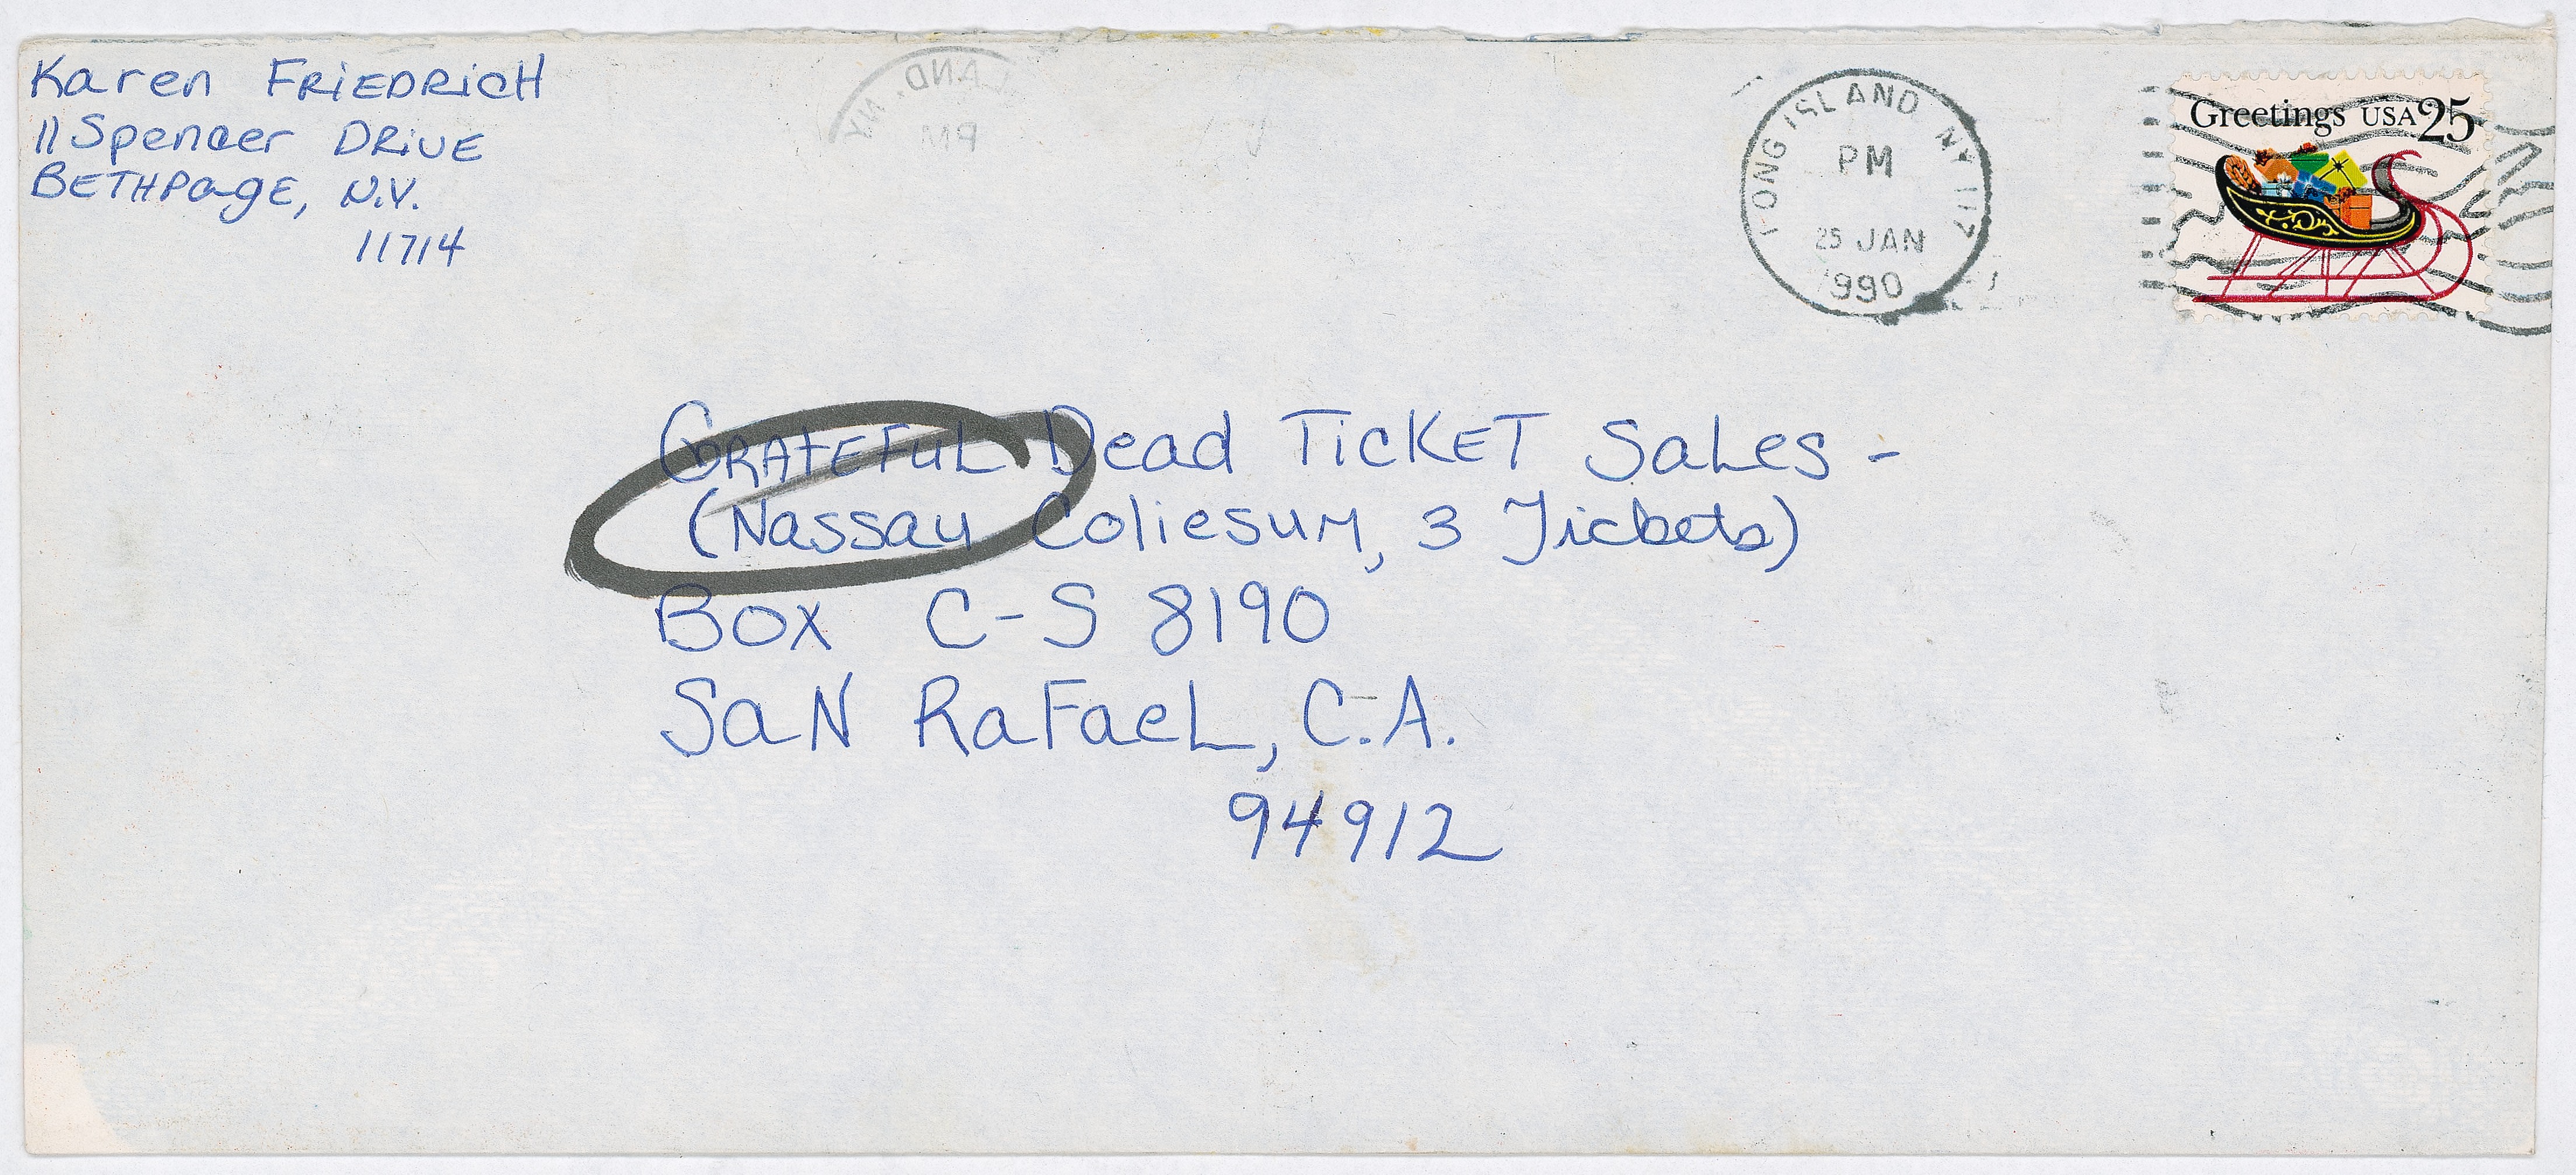 Karen FRiEDRicH
11 Spencer DRiVE
BETHPagE, N.Y.
11714
LAND, NY
PM
LONG ISLAND NY 117
PM
25 JAN
1990
Greetings USA 25
GRATEFUL Dead TicKET SaLes -
(Nassau Coliesum, 3 Tickets)
Box C-S 8190
SaN RaFaeL, C.A.
94912